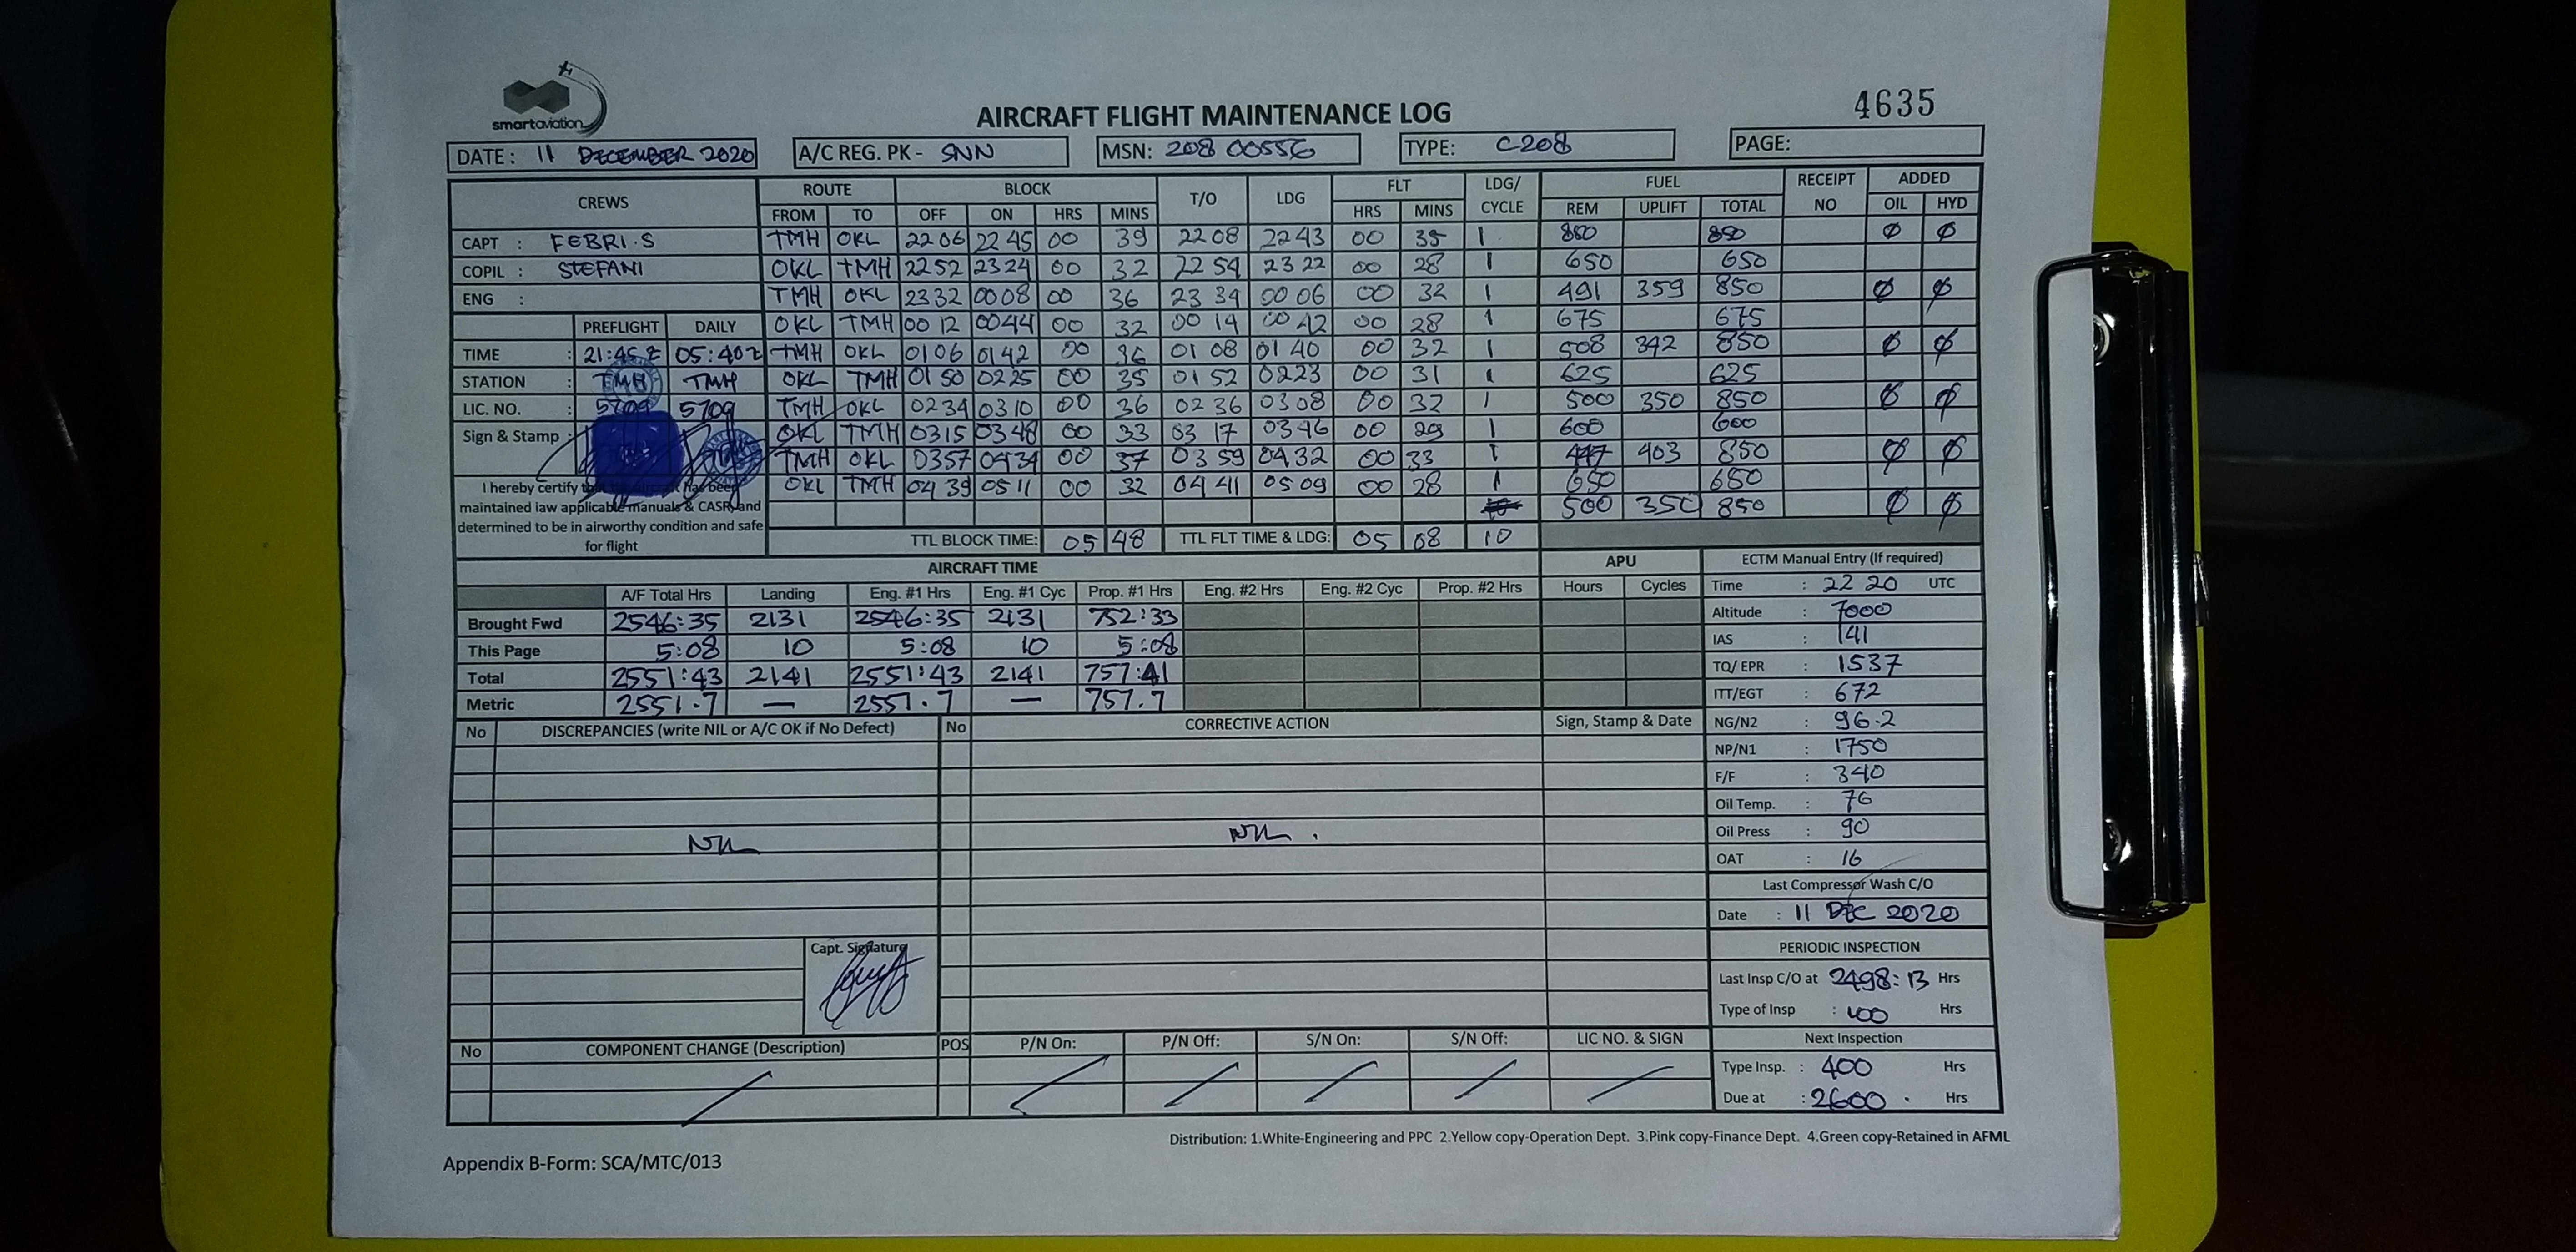 smartaviation
AIRCRAFT FLIGHT MAINTENANCE LOG
4635
DATE : 11 DECEMBER 2020 A/C REG. PK - SNN MSN: 208 00556 TYPE: C208 PAGE:
CREWS ROUTE BLOCK T/O LDG FLT LDG/ CYCLE FUEL RECEIPT NO ADDED
FROM TO OFF ON HRS MINS HRS MINS REM UPLIFT TOTAL OIL HYD
CAPT : FEBRI.S TMH OKL 22 06 22 45 00 39 22 08 22 43 00 35 1 850 850 Ø Ø
COPIL : STEFANI OKL TMH 22 52 23 24 00 32 22 54 23 22 00 28 1 650 650
ENG : TMH OKL 23 32 00 08 00 36 23 34 00 06 00 32 1 491 359 850 Ø Ø
PREFLIGHT DAILY OKL TMH 00 12 00 44 00 32 00 14 00 42 00 28 1 675 675
TIME : 21:45 z 05:40z TMH OKL 01 06 01 42 00 36 01 08 01 40 00 32 1 508 342 850 Ø Ø
STATION : TMH TMH OKL TMH 01 50 02 25 00 35 01 52 02 23 00 31 1 625 625
LIC. NO. : 5709 5709 TMH OKL 02 34 03 10 00 36 02 36 03 08 00 32 1 500 350 850 Ø Ø
Sign & Stamp : OKL TMH 03 15 03 48 00 33 03 17 03 46 00 29 1 600 600
TMH OKL 03 57 04 34 00 37 03 59 04 32 00 33 1 447 403 850 Ø Ø
OKL TMH 04 39 05 11 00 32 04 41 05 09 00 28 1 650 650
500 350 850 Ø Ø
I hereby certify that the aircraft has been
maintained iaw applicable manuals & CASR and
determined to be in airworthy condition and safe
for flight
TTL BLOCK TIME: 05 48 TTL FLT TIME & LDG: 05 08 10
AIRCRAFT TIME APU ECTM Manual Entry (If required)
A/F Total Hrs Landing Eng. #1 Hrs Eng. #1 Cyc Prop. #1 Hrs Eng. #2 Hrs Eng. #2 Cyc Prop. #2 Hrs Hours Cycles Time : 22 20 UTC
Brought Fwd 2546:35 2131 2546:35 2131 752:33
This Page 5:08 10 5:08 10 5:08
Total 2551:43 2141 2551:43 2141 757:41
Metric 2551.7 — 2551.7 — 757.7
Altitude : 7000
IAS : 141
TQ/ EPR : 1537
ITT/EGT : 672
NG/N2 : 96.2
NP/N1 : 1750
F/F : 340
Oil Temp. : 76
Oil Press : 90
OAT : 16
No DISCREPANCIES (write NIL or A/C OK if No Defect) No CORRECTIVE ACTION Sign, Stamp & Date
NIL NIL .
Capt. Signature
Last Compressor Wash C/O
Date : 11 DEC 2020
PERIODIC INSPECTION
Last Insp C/O at 2498:13 Hrs
Type of Insp : 400 Hrs
Next Inspection
Type Insp. : 400 Hrs
Due at : 2600 . Hrs
No COMPONENT CHANGE (Description) POS P/N On: P/N Off: S/N On: S/N Off: LIC NO. & SIGN
Distribution: 1.White-Engineering and PPC 2.Yellow copy-Operation Dept. 3.Pink copy-Finance Dept. 4.Green copy-Retained in AFML
Appendix B-Form: SCA/MTC/013